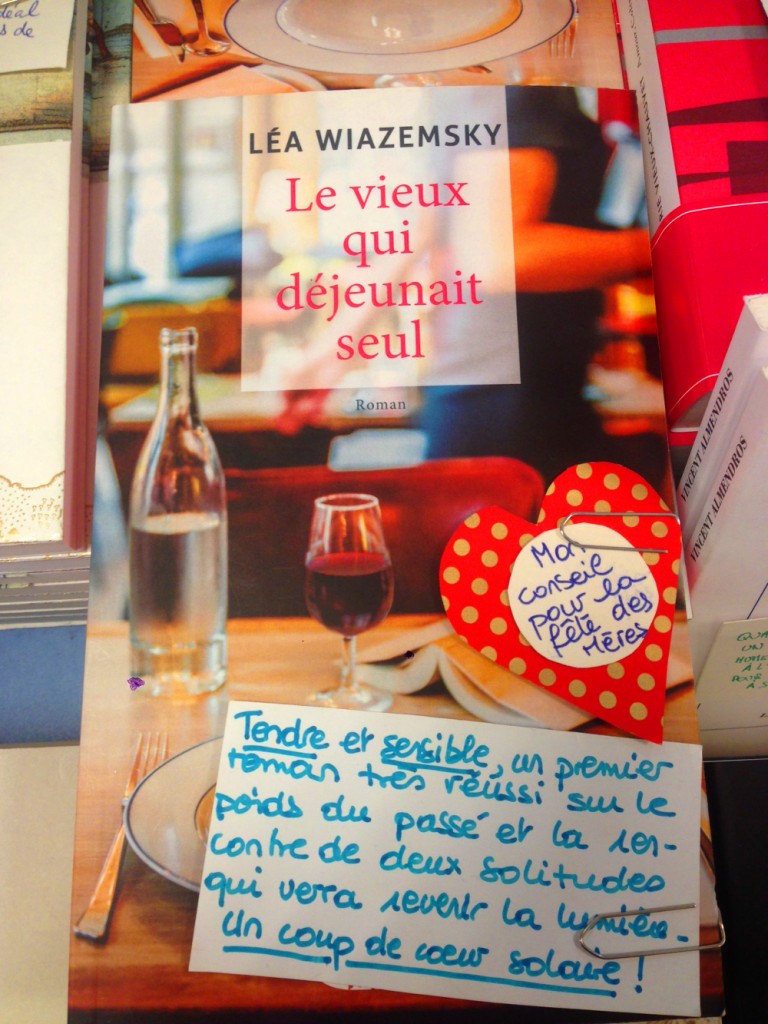 déal
s de
LÉA WIAZEMSKY
Le vieux
qui
déjeunait
seul
Roman
Mon
conseil
pour la
fête des
Mères
Tendre et sensible, un premier
roman très réussi sur le
poids du passé et la ren-
contre de deux solitudes
qui verra revenir la lumière.
Un coup de cœur solaire !
VINCENT ALMENDROS
VINCENT ALMENDROS
QUA
UN